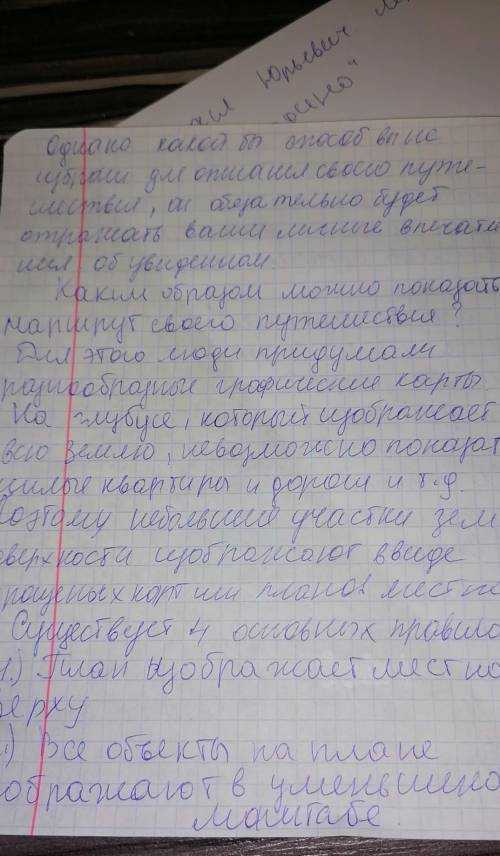 Юрьевич
Однако какой бы способ вы не
избрали для описания своего путе-
шествия, он обязательно будет
отражать ваши личные впечатл
ния об увиденном.
Каким образом можно показать
маршрут своего путешествия?
Для этого люди придумали
разнообразные графические карты.
На глубусе, который изображает
всю землю, невозможно показат
жилые квартиры и дороги и т.д.
Поэтому небольшие участки зем
оверхности изображают ввиде
рощеных карт или планов местн
Существует 4 основных правила
1.) План изображает местно
верху
.) Все объекты на плане
ображают в уменьшено
маштабе.